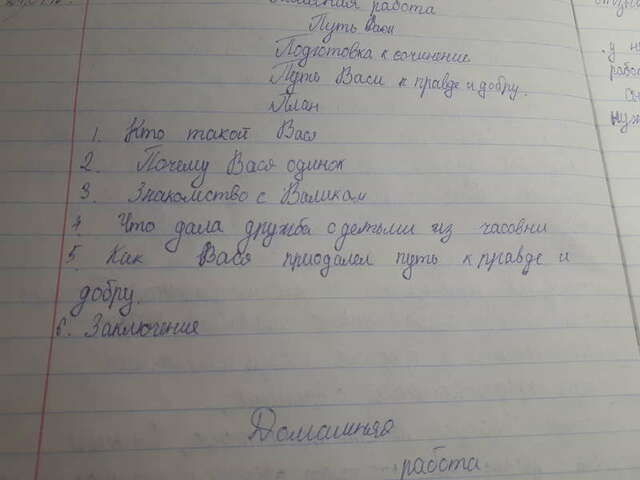 работа
Путь Васи
Подготовка к сочинение
Путь Васи к правде и добру.
План
1. Кто такой Вася
2. Почему Вася одинок
3 Знакомство с Валикам
4 Что дала дружба с детьми из часовни
5 Как Вася приодалел путь к правде и
добру.
6. Заключения
Домашняя
работа